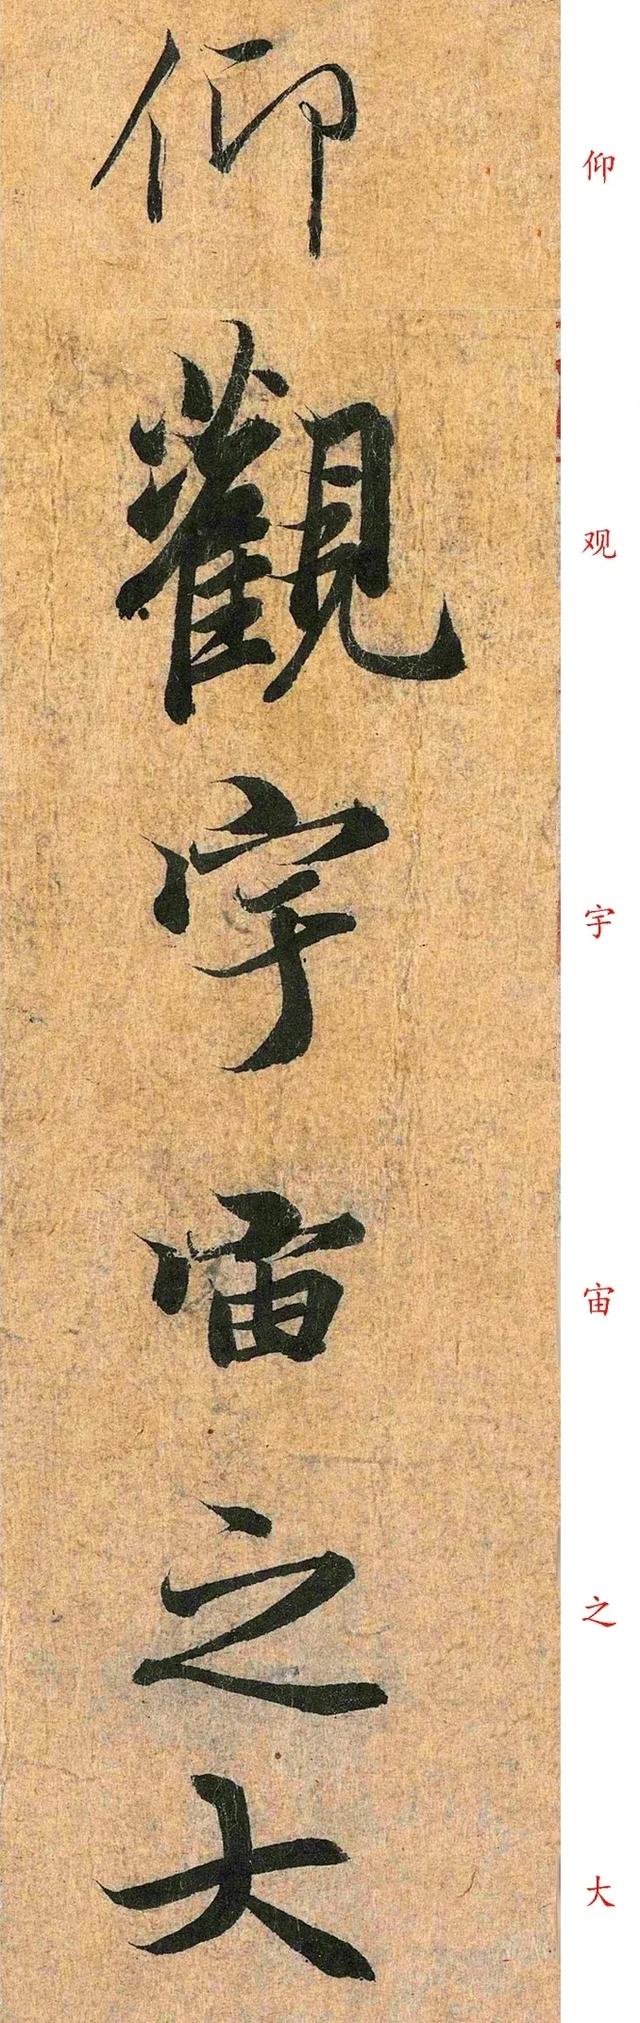 仰觀宇宙之大
仰
观
宇
宙
之
大